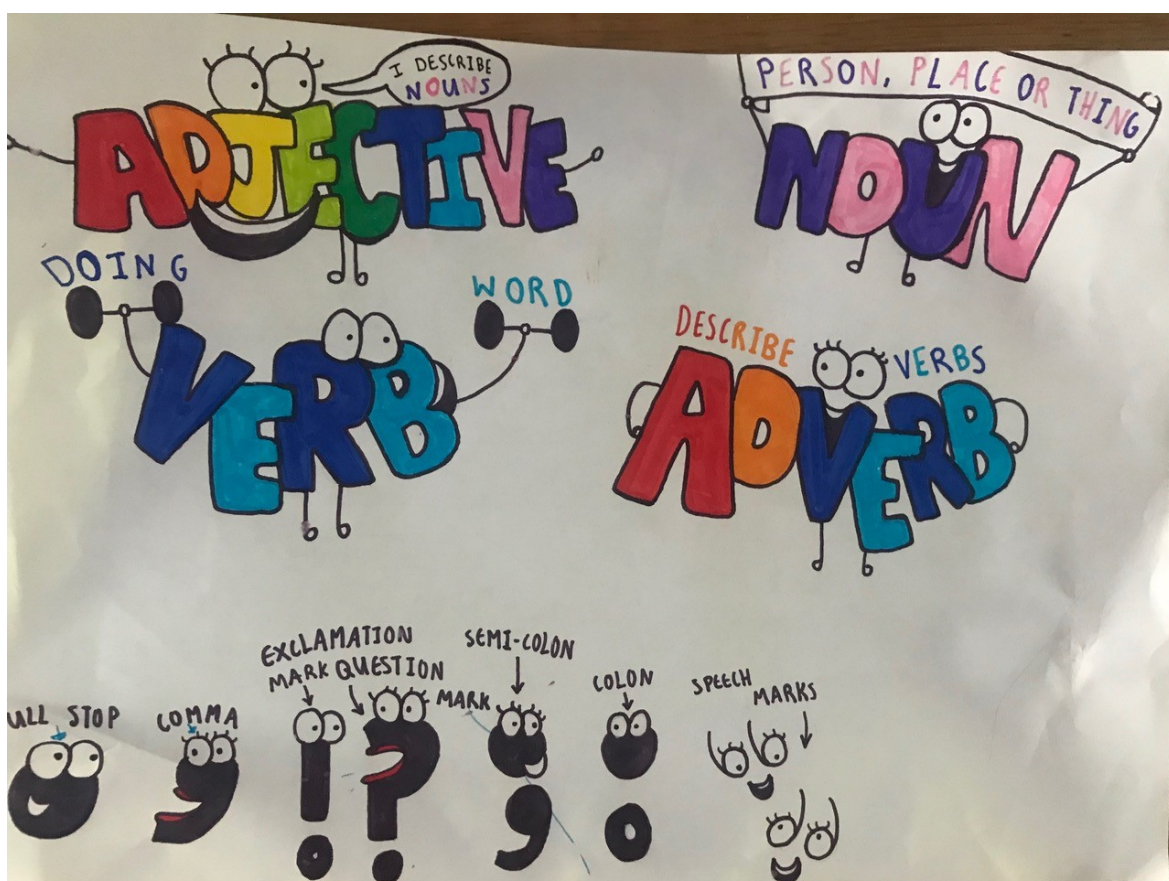 I DESCRIBE
NOUNS
ADJECTIVE
PERSON, PLACE OR THING
NOUN
DOING
WORD
VERB
DESCRIBE
VERBS
ADVERB
EXCLAMATION
MARK
QUESTION
MARK
SEMI-COLON
COLON
SPEECH
MARKS
ULL STOP
COMMA